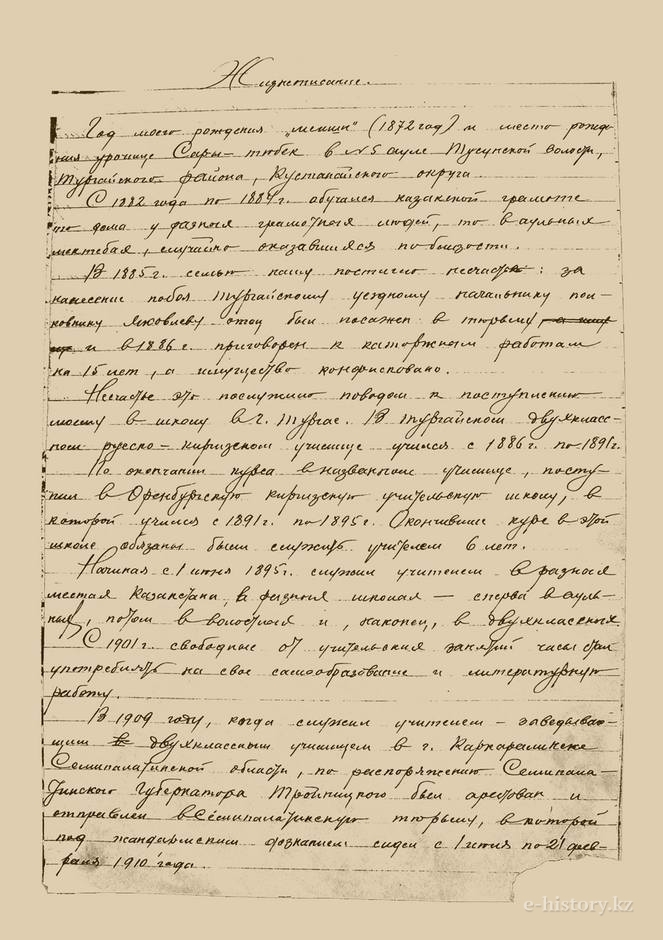 Жизнеописание.
Год моего рождения "мешин" (1872 год) и место рожде-
ния урочище Сары-тюбек в №5 ауле Тусунской волости,
Тургайского района, Кустанайского округа.
С 1882 года по 1884г. обучался казакской грамоте
то дома у разных грамотных людей, то в аульных
мектебах, случайно оказавшихся поблизости.
В 1885г. семью нашу постигло несчастье: за
нанесение побоя Тургайскому уездному начальнику пол-
ковнику Яковлеву отец был посажен в тюрьму
и в 1886г. приговорен к каторжным работам
на 15 лет, а имущество конфисковано.
Несчастье это послужило поводом к поступлению
моему в школу в г. Тургае. В Тургайском двухкласс-
ном русско-киргизском училище учился с 1886г. по 1891г.
По окончании курса в названном училище, посту-
пил в Оренбургскую киргизскую учительскую школу, в
которой учился с 1891г. по 1895г. Окончившие курс в этой
школе обязаны были служить учителем 6 лет.
Начиная с 1 июня 1895г. служил учителем в разных
местах Казакстана, в разных школах — сперва в ауль-
ных, потом в волостных и, наконец, в двухклассных.
С 1901г. свободные от учительских занятий часы стал
употреблять на свое самообразование и литературную
работу.
В 1909 году, когда служил учителем - заведываю-
щим двухклассным училищем в г. Каркаралинске
Семипалатинской области, по распоряжению Семипала-
тинского Губернатора Тройницкого был арестован и
отправлен в Семипалатинскую тюрьму, в которой
под жандармским дознанием сидел с 1 июля по 21 фев-
раля 1910 года.
e-history.kz